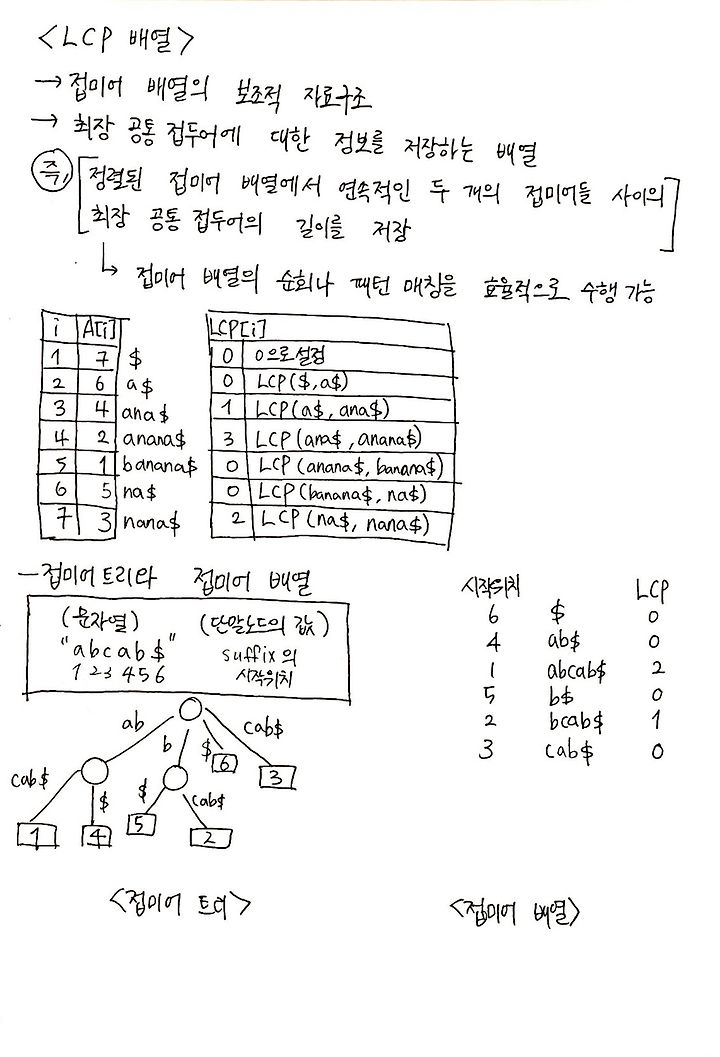 <LCP 배열>
→ 접미어 배열의 보조적 자료구조
→ 최장 공통 접두어에 대한 정보를 저장하는 배열
즉, [정렬된 접미어 배열에서 연속적인 두 개의 접미어들 사이의
최장 공통 접두어의 길이를 저장]
↳ 접미어 배열의 순회나 패턴 매칭을 효율적으로 수행 가능
i A[i] LCP[i]
1 7 $ 0 0으로 설정
2 6 a$ 0 LCP($,a$)
3 4 ana$ 1 LCP(a$, ana$)
4 2 anana$ 3 LCP(ana$, anana$)
5 1 banana$ 0 LCP(anana$, banana$)
6 5 na$ 0 LCP(banana$, na$)
7 3 nana$ 2 LCP(na$, nana$)
- 접미어 트리와 접미어 배열
(문자열) (단말노드의 값)
"abcab$" suffix의
1 2 3 4 5 6 시작위치
ab b $ cab$
6 3
cab$ $ $ cab$
1 4 5 2
<접미어 트리>
시작위치 LCP
6 $ 0
4 ab$ 0
1 abcab$ 2
5 b$ 0
2 bcab$ 1
3 cab$ 0
<접미어 배열>